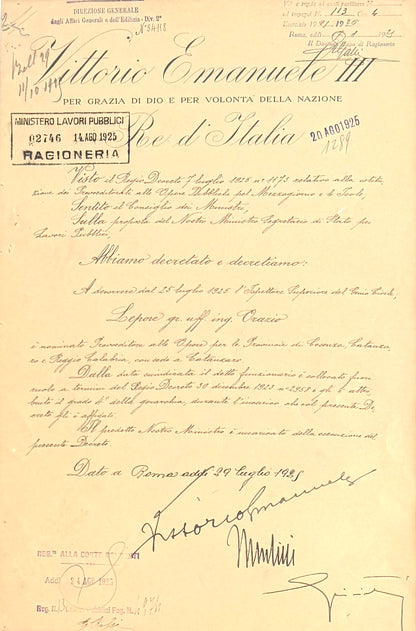 DIREZIONE GENERALE
degli Affari Generali e dell'Edilizia - Div. 2ª
N° 34118
N. 113 C. 4
Roma,
Il Direttore Capo di Ragioneria
Vittorio Emanuele III
PER GRAZIA DI DIO E PER VOLONTÀ DELLA NAZIONE
Re d'Italia
MINISTERO LAVORI PUBBLICI
02746 14 AGO 1925
RAGIONERIA
20 AGO 1925
1289
Visto il Regio Decreto 7 luglio 1925 n° 1173 relativo alla istitu
zione dei Provveditorati alle Opere Pubbliche pel Mezzogiorno e le Isole,
Sentito il Consiglio dei Ministri,
Sulla proposta del Nostro Ministro Segretario di Stato pei
Lavori Pubblici,
Abbiamo decretato e decretiamo:
A decorrere dal 25 luglio 1925 l'Ispettore Superiore del Genio Civile,
Lepore gr. uff. ing. Orazio
è nominato Provveditore alle Opere per le Provincie di Cosenza, Catanza,
ro e Reggio Calabria, con sede a Catanzaro.
Dalla data suindicata il detto funzionario è collocato fuori
ruolo a termini del Regio Decreto 30 dicembre 1923 n° 2958 e gli è attri,
buito il grado della gerarchia, durante l'incarico che col presente De,
creto gli è affidato.
Il predetto Nostro Ministro è incaricato della esecuzione del
presente Decreto.
Dato a Roma addì 29 luglio 1925
Vittorio Emanuele
Mussolini
REG.TO ALLA CORTE DEI CONTI
Addì 24 AGO 1925
Reg. N. Lavori Pubblici Fog. N.